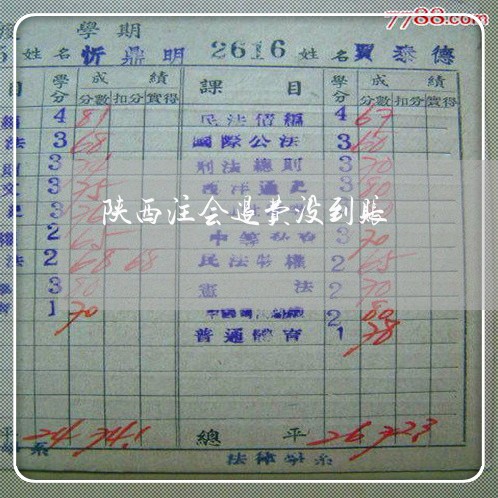 7788.com
學期
姓名 忻鼎明 2616 姓名 賈泰德
目 學分 成績 課目 學分 成績
分數 扣分 實得 分數 扣分 實得
4 81 民法債編 4 67
法 3 68 國際公法 3 60
3 刑法總則 3 70
3 75 西洋通史 3 80
陕西注会退费没到账
2 65 3 70
法 2 68 68 民法物權 2 65
3 80 憲法 2 70
1 70 2 80
普通體育 1 78
平 24 74.1 總平 26 72.3
系 法律學系